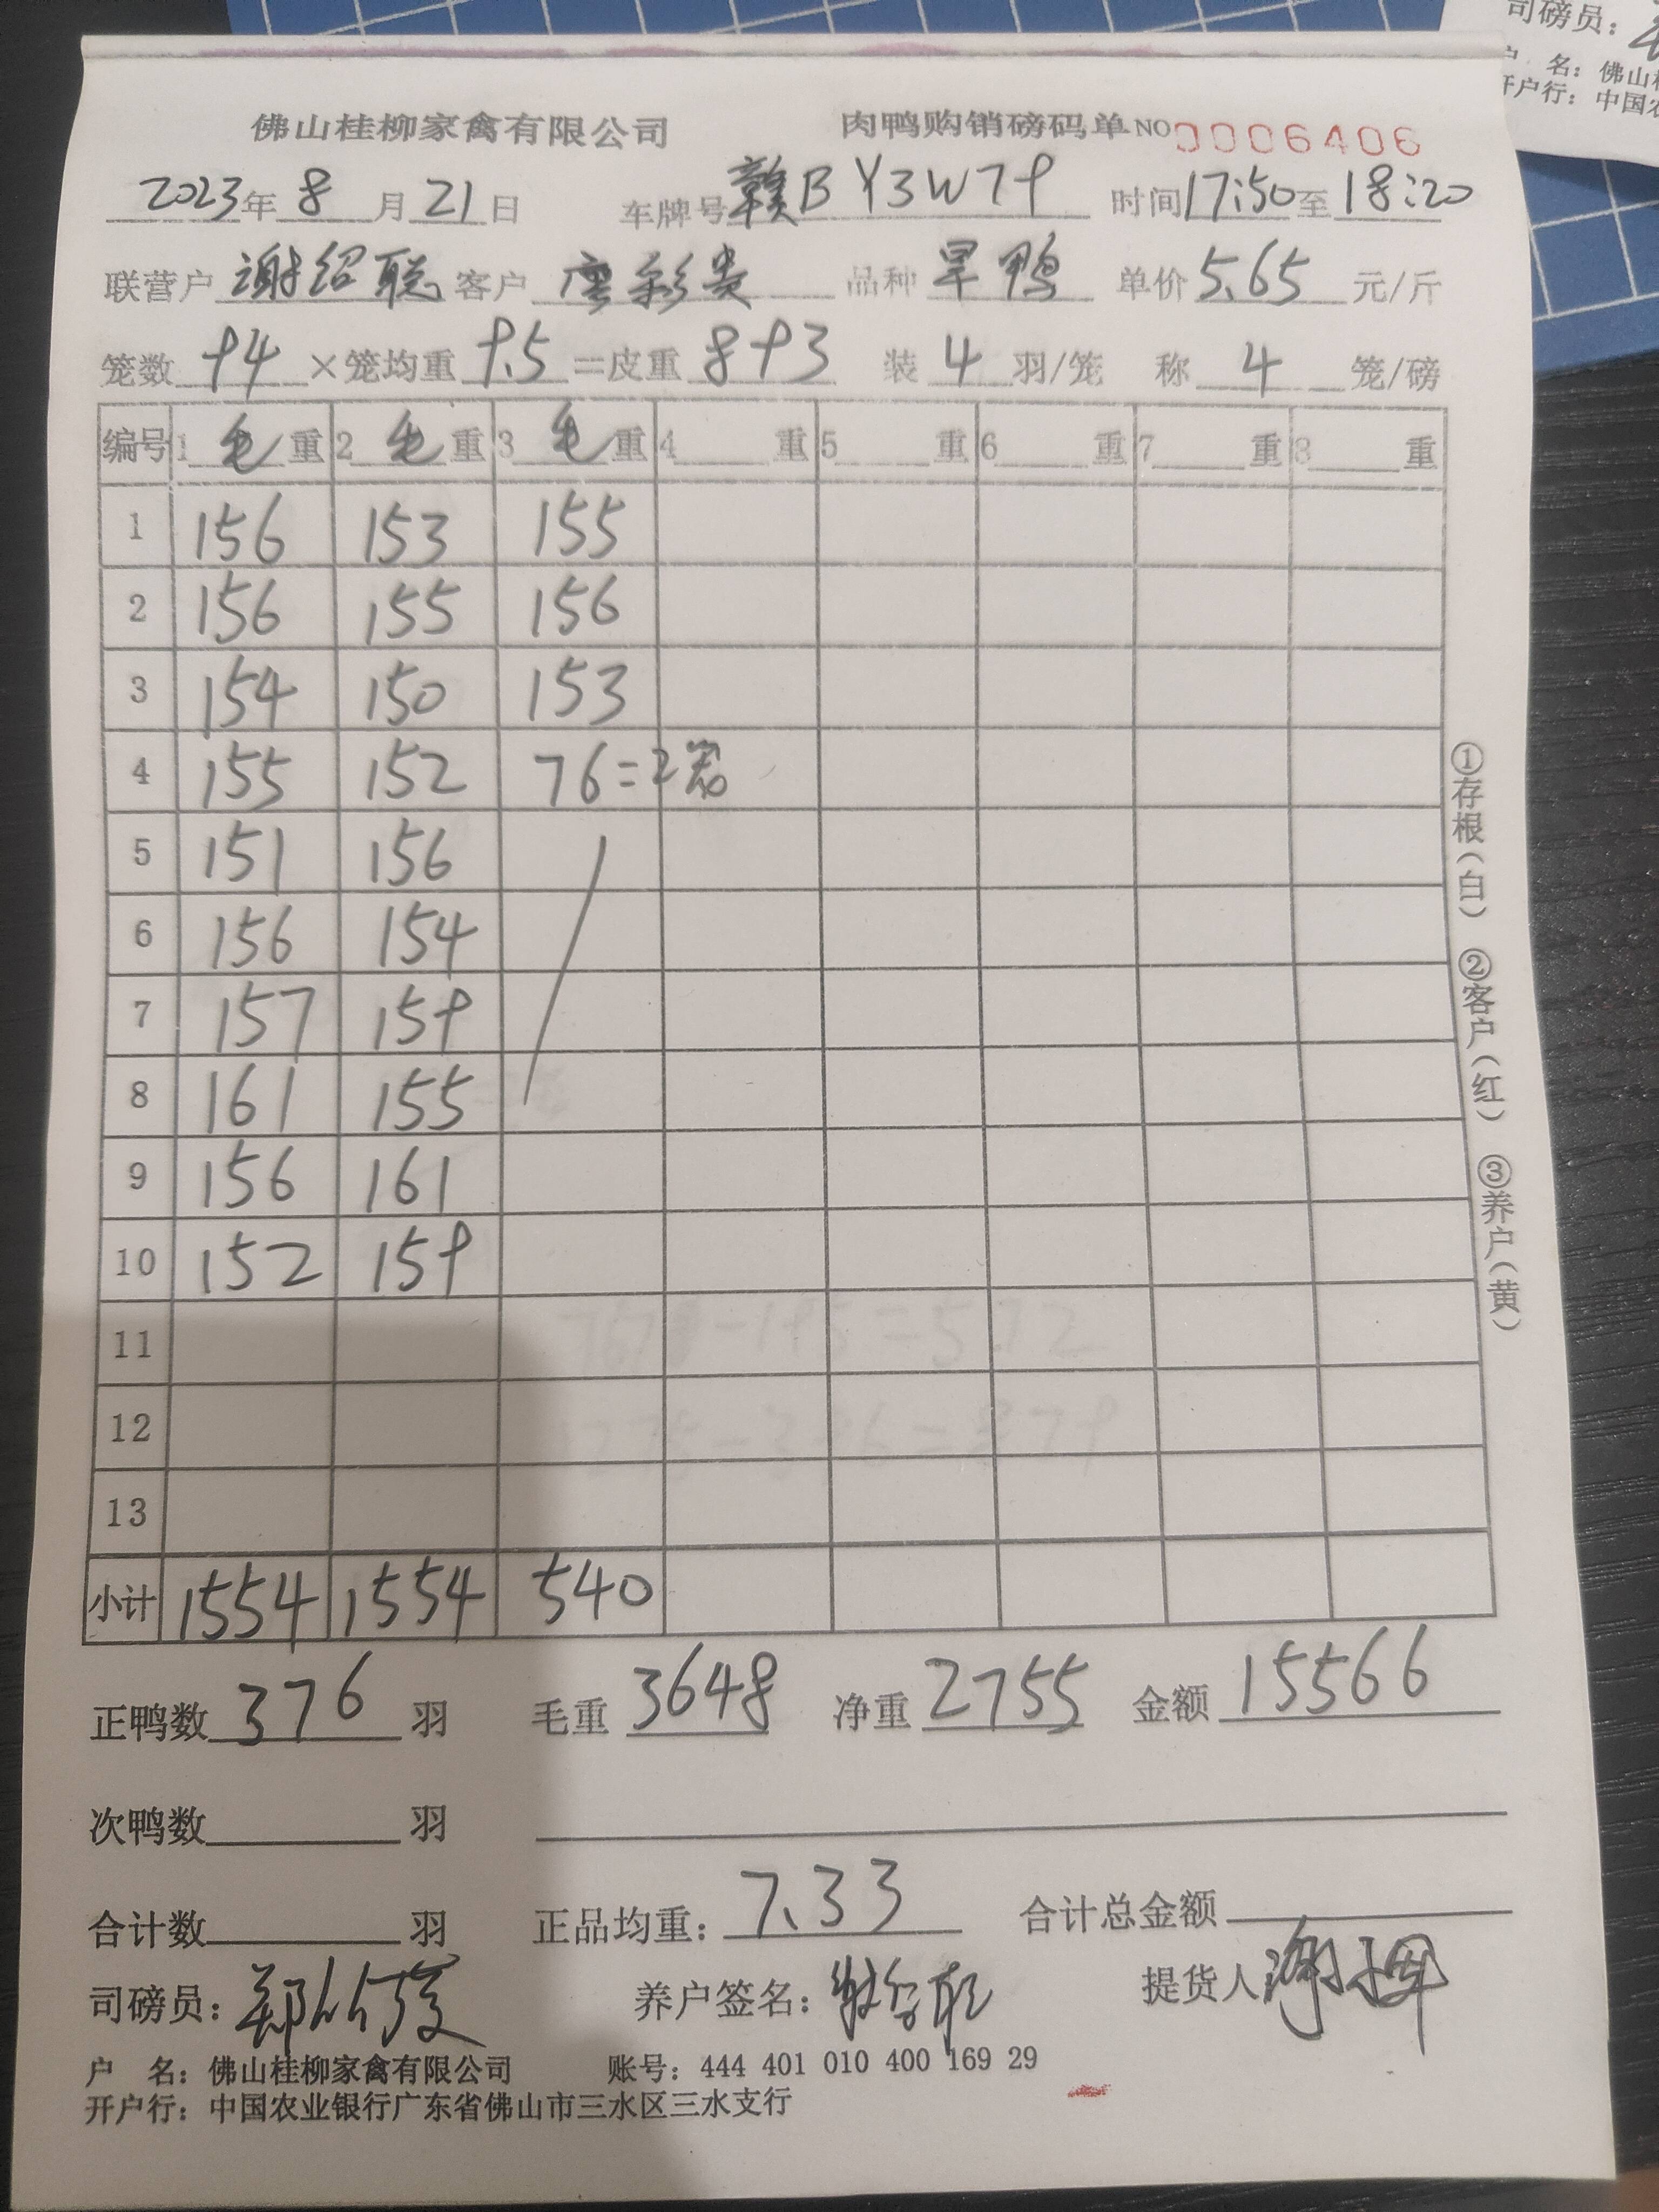 司磅员：
户 名：佛山
开户行：中国农
佛山桂柳家禽有限公司 肉鸭购销磅码单 NO 0006406
2023年 8 月 21 日 车牌号 赣B Y3W79 时间 17:50 至 18:20
联营户 谢绍聪 客户 唐彩贵 品种 旱鸭 单价 5.65 元/斤
笼数 94 ×笼均重 9.5 =皮重 893 装 4 羽/笼 称 4 笼/磅
编号 1 毛 重 2 毛 重 3 毛 重 4 重 5 重 6 重 7 重 8 重
1 156 153 155
2 156 155 156
3 154 150 153
4 155 152 76=2笼
5 151 156
6 156 154
7 157 159
8 161 155
9 156 161
10 152 159
11
12
13
小计 1554 1554 540
正鸭数 376 羽 毛重 3648 净重 2755 金额 15566
次鸭数 羽
合计数 羽 正品均重： 7.33 合计总金额
司磅员： 养户签名： 提货人
户 名：佛山桂柳家禽有限公司 账号：444 401 010 400 169 29
开户行：中国农业银行广东省佛山市三水区三水支行
①存根（白） ②客户（红） ③养户（黄）